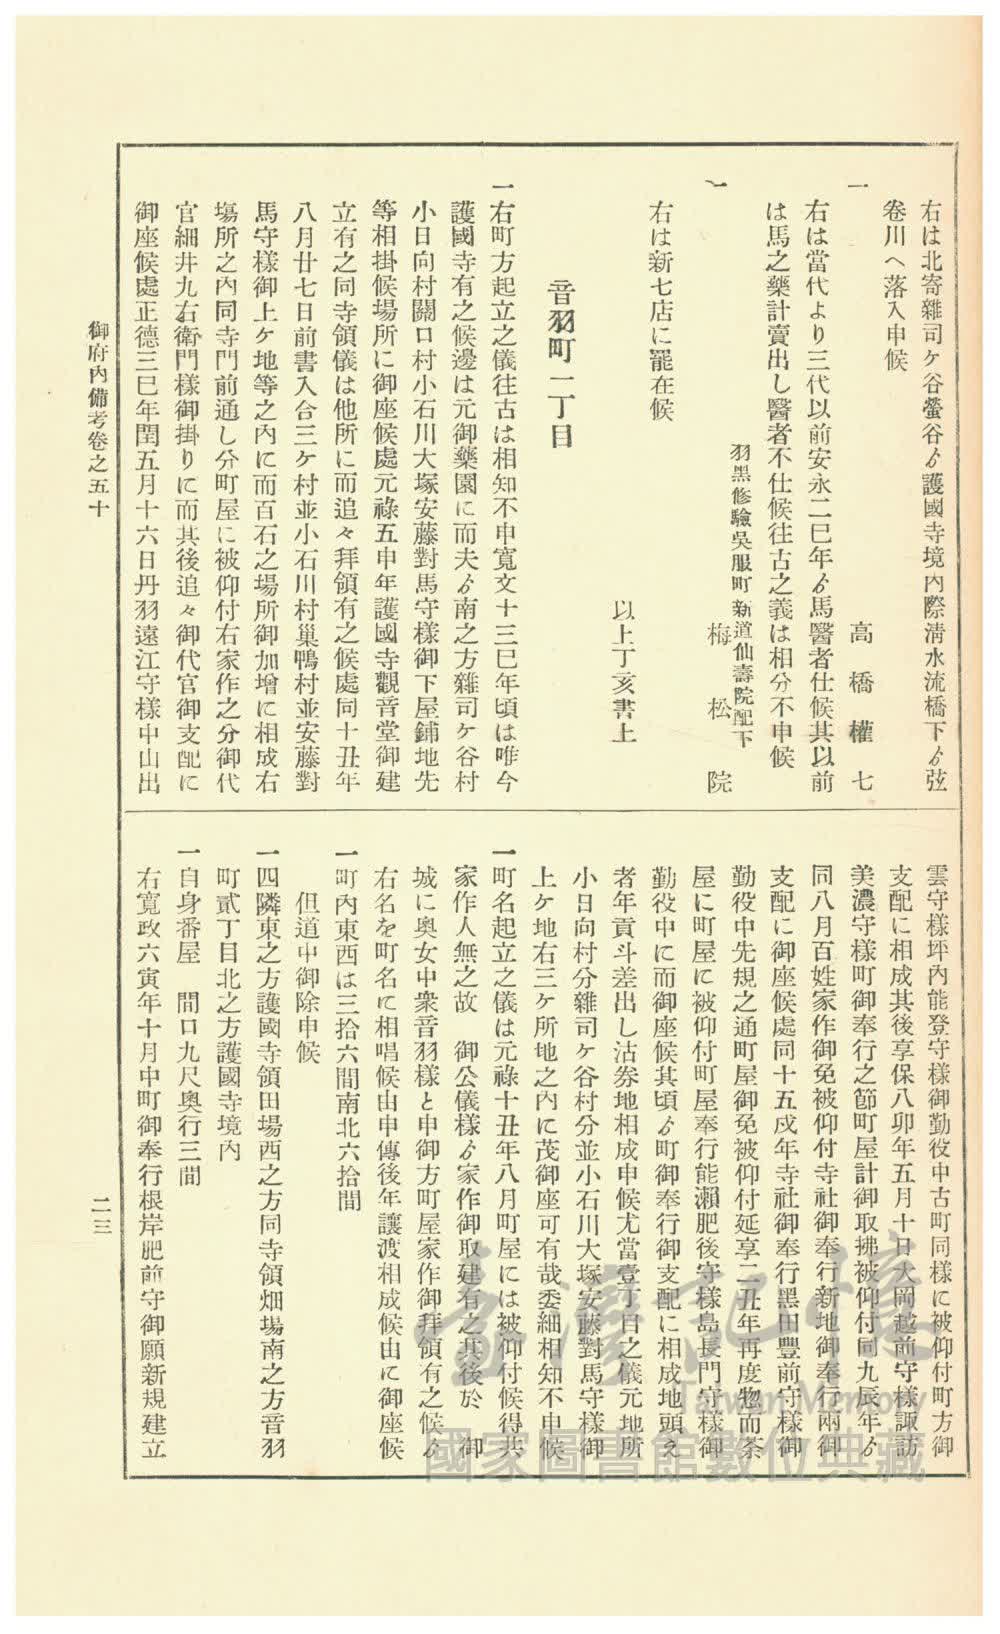 右は北寄雜司ケ谷螢谷ゟ護國寺境內際淸水流橋下ゟ弦
卷川へ落入申候
一　高橋權七
右は當代より三代以前安永二巳年ゟ馬醫者仕候其以前
は馬之藥計賣出し醫者不仕候往古之義は相分不申候
羽黑修驗吳服町新道仙壽院配下
一　梅松院
右は新七店に罷在候
以上丁亥書上
音羽町一丁目
一右町方起立之儀往古は相知不申寬文十三巳年頃は唯今
護國寺有之候邊は元御藥園に而夫ゟ南之方雜司ケ谷村
小日向村關口村小石川大塚安藤對馬守樣御下屋鋪地先
等相掛候場所に御座候處元祿五申年護國寺觀音堂御建
立有之同寺領儀は他所に而追々拜領有之候處同十丑年
八月廿七日前書入合三ケ村並小石川村巢鴨村並安藤對
馬守樣御上ケ地等之內に而百石之場所御加增に相成右
塲所之內同寺門前通し分町屋に被仰付右家作之分御代
官細井九右衞門樣御掛りに而其後追々御代官御支配に
御座候處正德三巳年閏五月十六日丹羽遠江守樣中山出
雲守樣坪內能登守樣御勤役中古町同樣に被仰付町方御
支配に相成其後享保八卯年五月十日大岡越前守樣諏訪
美濃守樣町御奉行之節町屋計御取拂被仰付同九辰年ゟ
同八月百姓家作御免被仰付寺社御奉行新地御奉行兩御
支配に御座候處同十五戌年寺社御奉行黑田豐前守樣御
勤役中先規之通町屋御免被仰付延享二丑年再度惣而茶
屋に町屋に被仰付町屋奉行能瀨肥後守樣島長門守樣御
勤役中に而御座候其頃ゟ町御奉行御支配に相成地頭え
者年貢斗差出し沽券地相成申候尤當壹丁目之儀元地所
小日向村分雜司ケ谷村分並小石川大塚安藤對馬守樣御
上ケ地右三ケ所地之內に茂御座可有哉委細相知不申候
一町名起立之儀は元祿十丑年八月町屋には被仰付候得共
家作人無之故　御公儀樣ゟ家作御取建有之其後於　御
城に奧女中衆音羽樣と申御方町屋家作御拜領有之候ゟ
右名を町名に相唱候由申傳後年讓渡相成候由に御座候
一町內東西は三拾六間南北六拾間
但道中御除申候
一四隣東之方護國寺領田場西之方同寺領畑場南之方音羽
町貳丁目北之方護國寺境內
一自身番屋　間口九尺奧行三間
右寬政六寅年十月中町御奉行根岸肥前守御願新規建立
御府內備考卷之五十
二三
臺灣記憶
Taiwan Memory
國家圖書館數位典藏